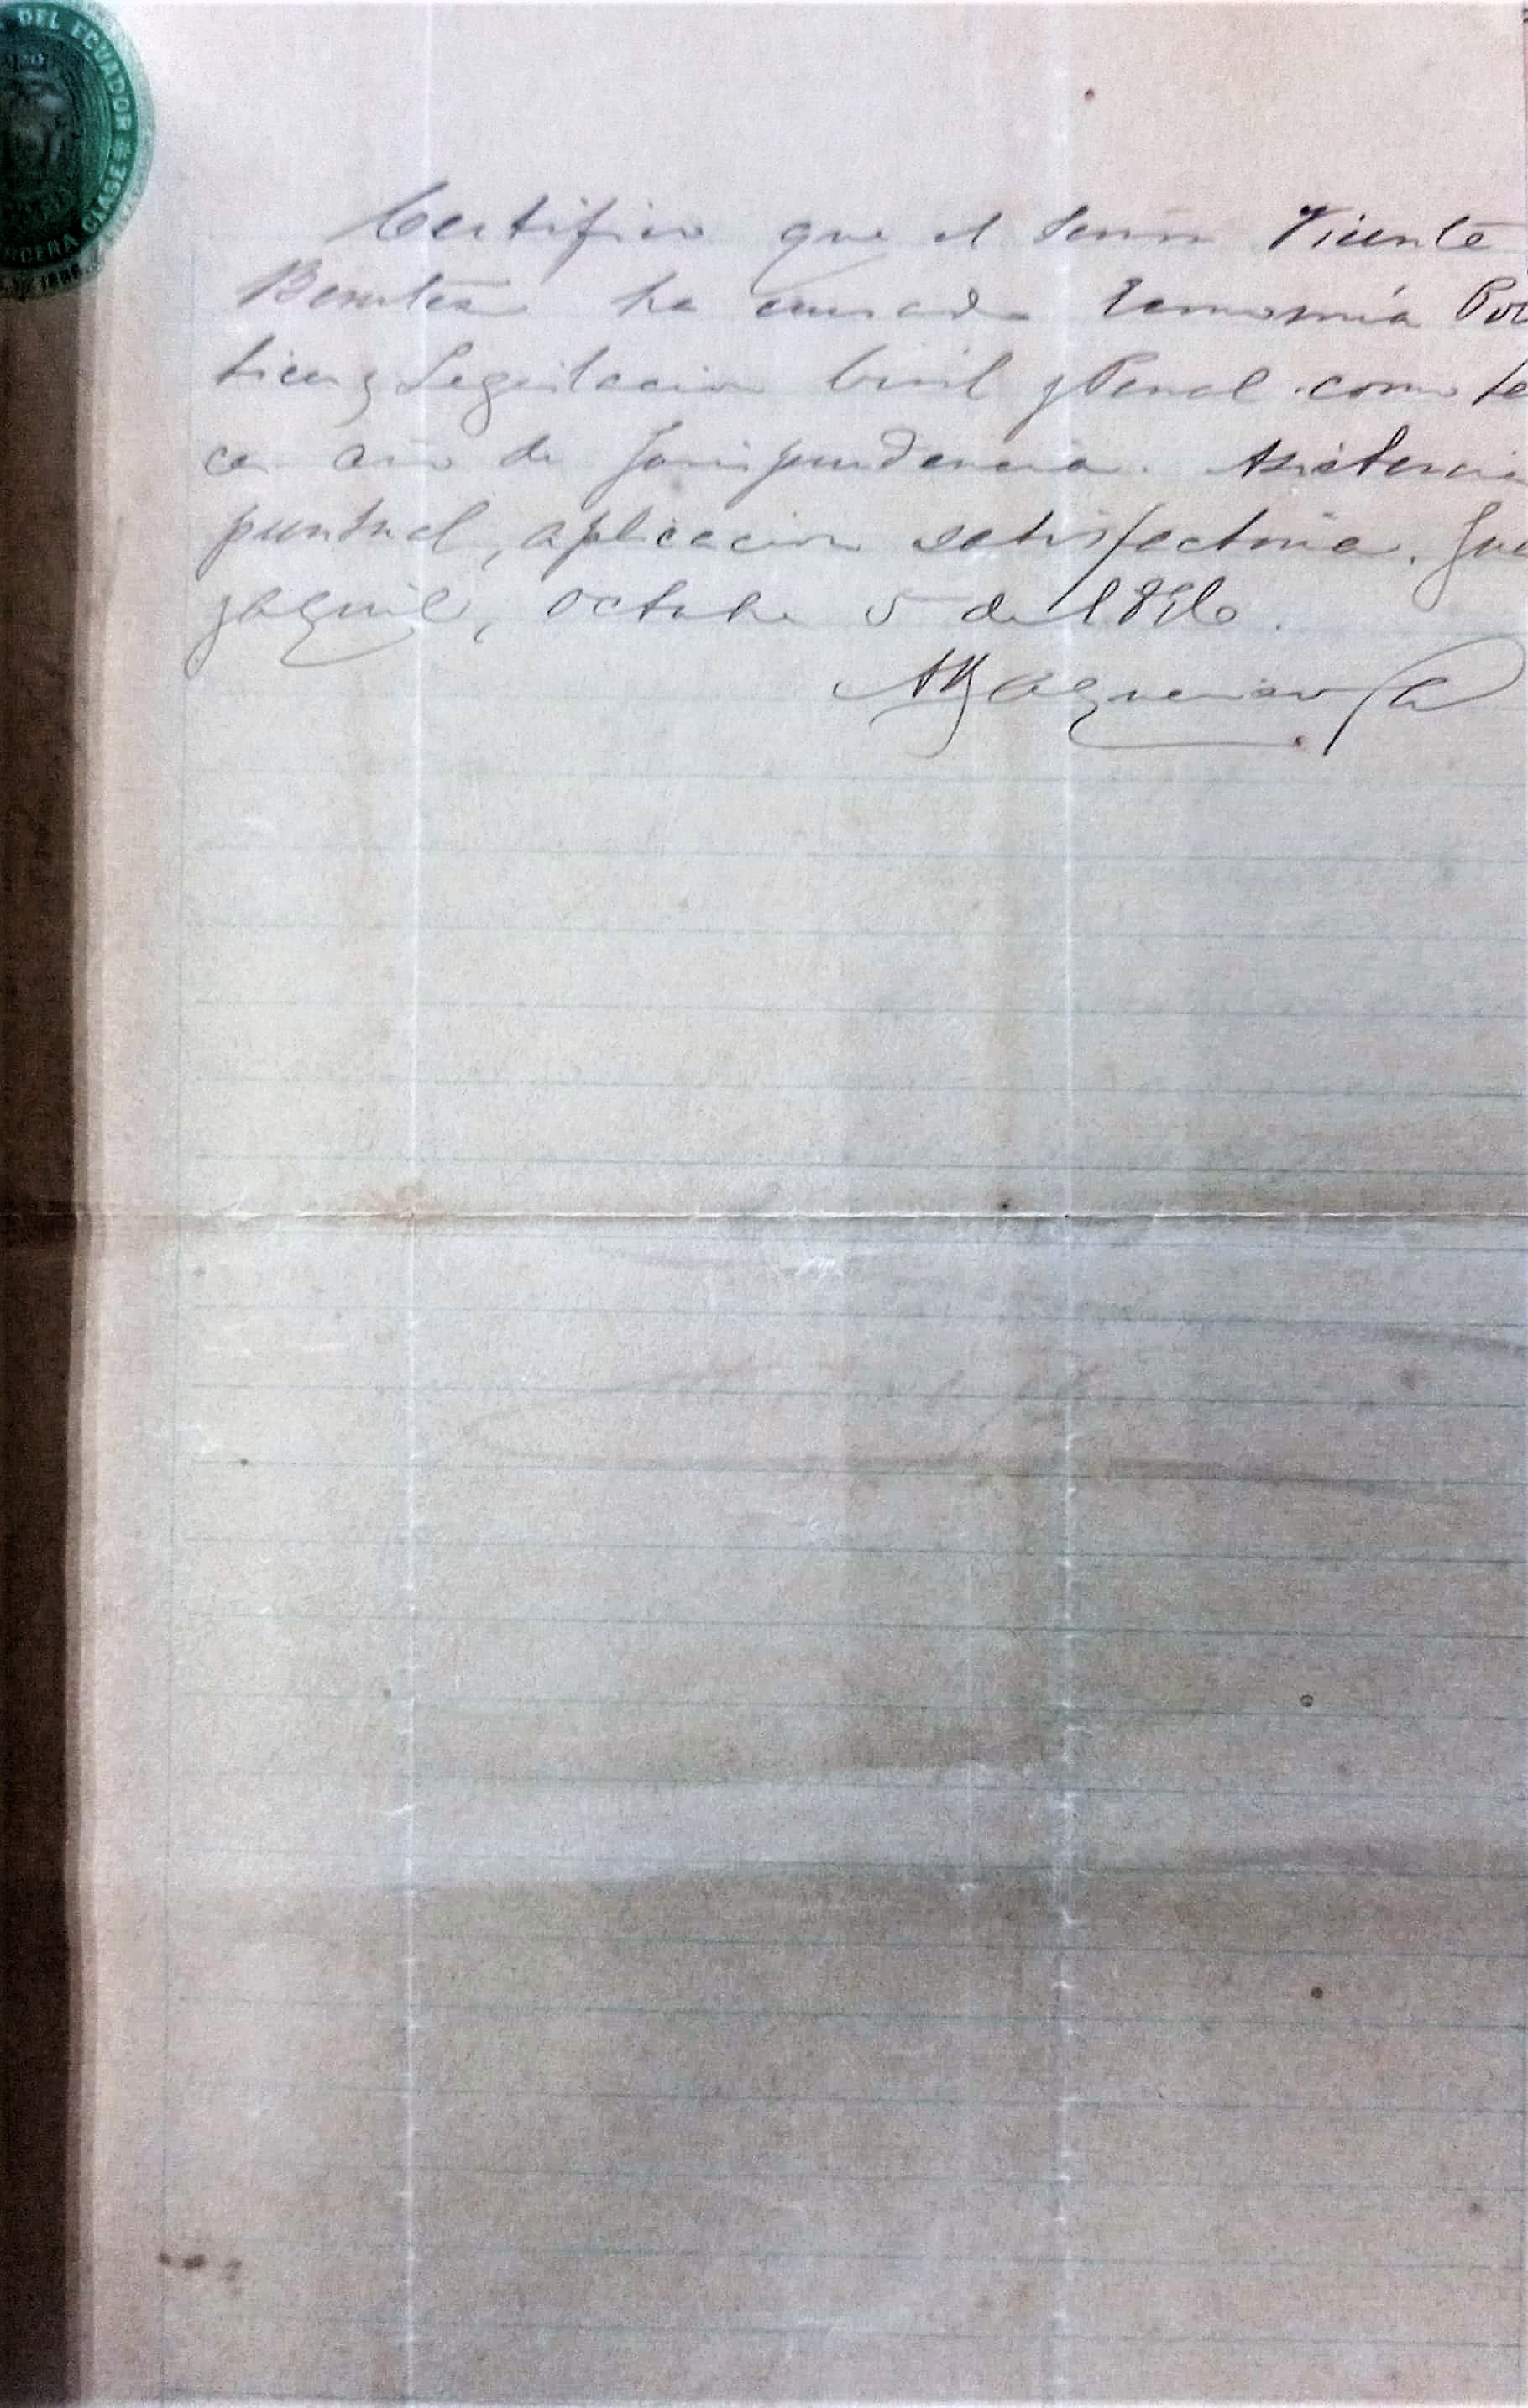 DEL ECUADOR
CLASE
Certifico que el Señor Vicente
Benites ha cursado Economía Polí
tica y Legislacion Civil y Penal como
ca año de Jurisprudencia. Asistencia
puntual, aplicacion satisfactoria. Gua
yaquil, Octubre 5 de 1896.